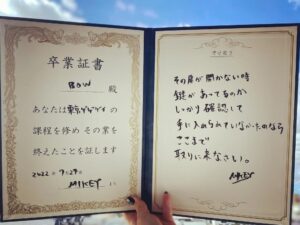 卒業証書
BOW 殿
あなたは東京ゲゲゲイの
課程を修め その業を
終えたことを証します
2022年9月29日
MIKEY
その扉が開かない時
鍵があってるのか
しっかり確認して
手に入れられていなかったのなら
ここまで
取りに来なさい。
MIKEY